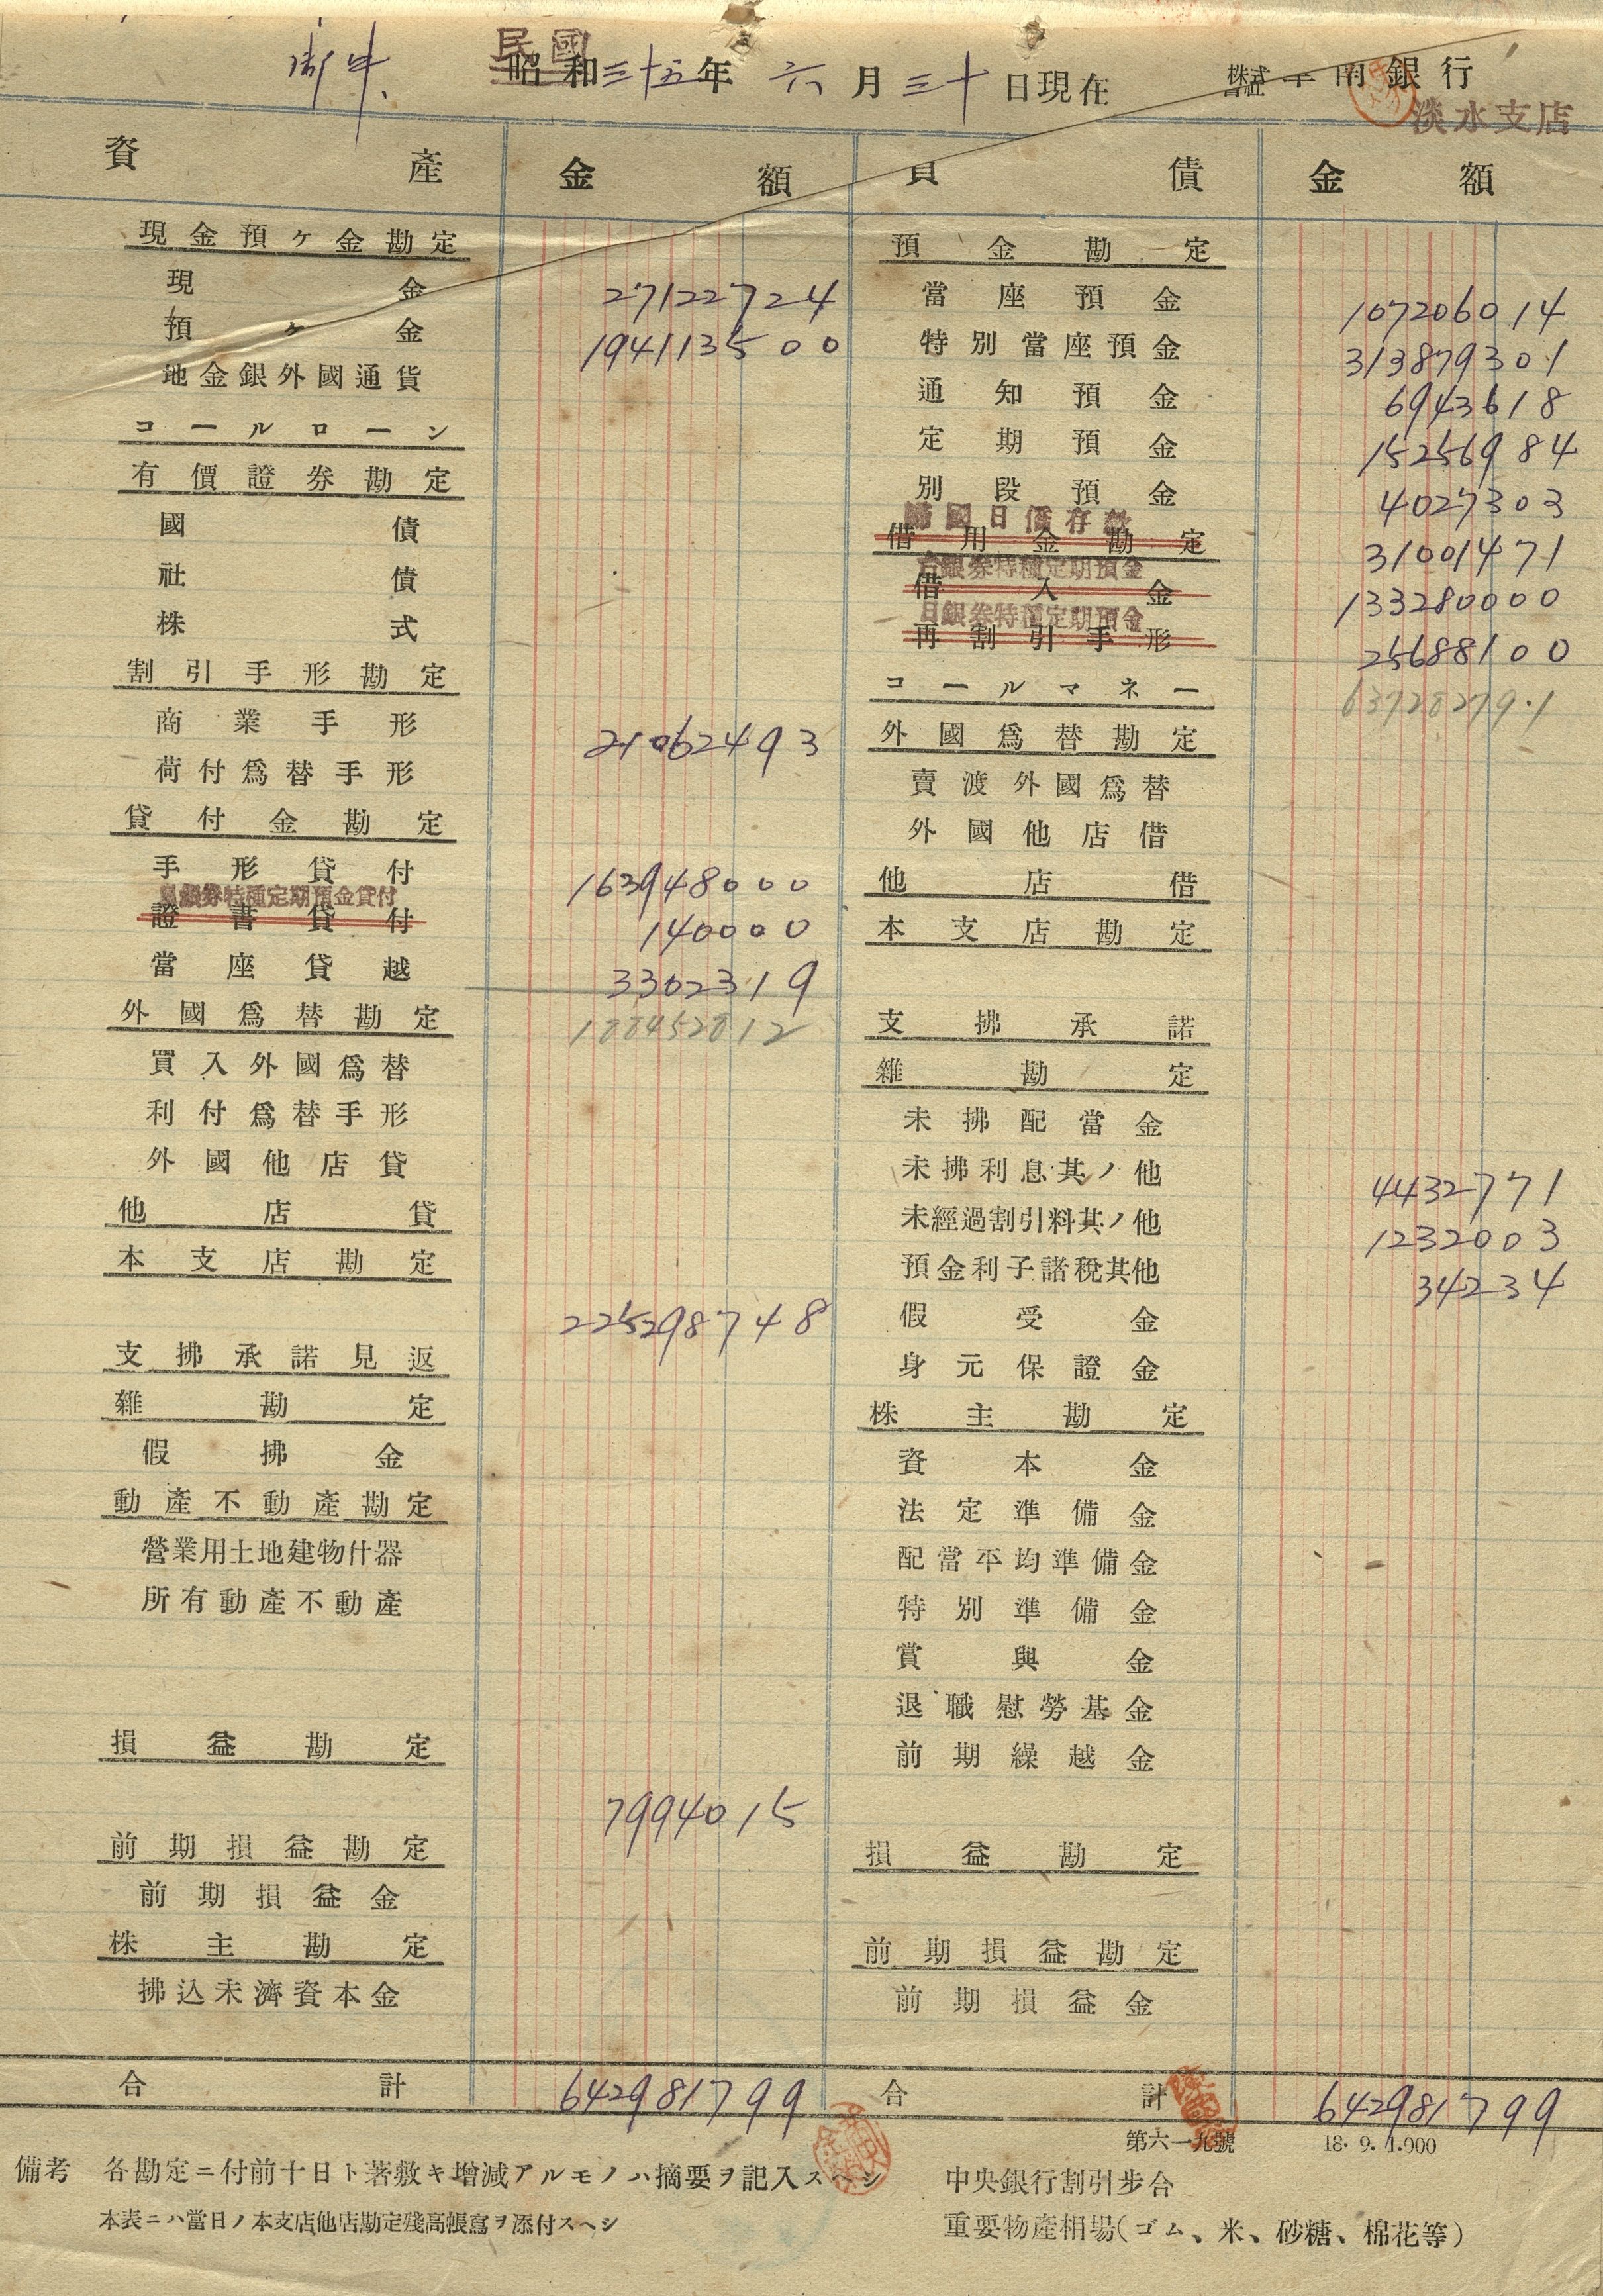 民國
昭和三十五年 六月三十日現在
株式會社 華南銀行
淡水支店
資產 金額 負債 金額
現金預ケ金勘定
現金 27122724
預ケ金 194113500
地金銀外國通貨
コールローン
有價證券勘定
國債
社債
株式
割引手形勘定
商業手形 21062493
荷付爲替手形
貸付金勘定
手形貸付 163948000
日銀券特種定期預金貸付 140000
證書貸付
當座貸越 3302319
外國爲替勘定 188452812
買入外國爲替
利付爲替手形
外國他店貸
他店貸
本支店勘定
225298748
支拂承諾見返
雜勘定
假拂金
動產不動產勘定
營業用土地建物什器
所有動產不動產
損益勘定
7994015
前期損益勘定
前期損益金
株主勘定
拂込未濟資本金
合計 642981799
預金勘定
當座預金 107206014
特別當座預金 313879301
通知預金 6943618
定期預金 15256984
別段預金 4027303
歸國日僑存款 31001471
借用金勘定
台銀券特種定期預金 133280000
借入金
日銀券特種定期預金 25688100
再割引手形
コールマネー 637282791
外國爲替勘定
賣渡外國爲替
外國他店借
他店借
本支店勘定
支拂承諾
雜勘定
未拂配當金
未拂利息其ノ他 4432771
未經過割引料其ノ他 1232003
預金利子諸稅其他 34234
假受金
身元保證金
株主勘定
資本金
法定準備金
配當平均準備金
特別準備金
賞與金
退職慰勞基金
前期繰越金
損益勘定
前期損益勘定
前期損益金
合計 642981799
第六一九號 18. 9. 1.000
備考 各勘定ニ付前十日ト著敷キ增減アルモノハ摘要ヲ記入スヘシ
本表ニハ當日ノ本支店他店勘定殘高帳寫ヲ添付スヘシ
中央銀行割引步合
重要物產相場(ゴム、米、砂糖、棉花等)